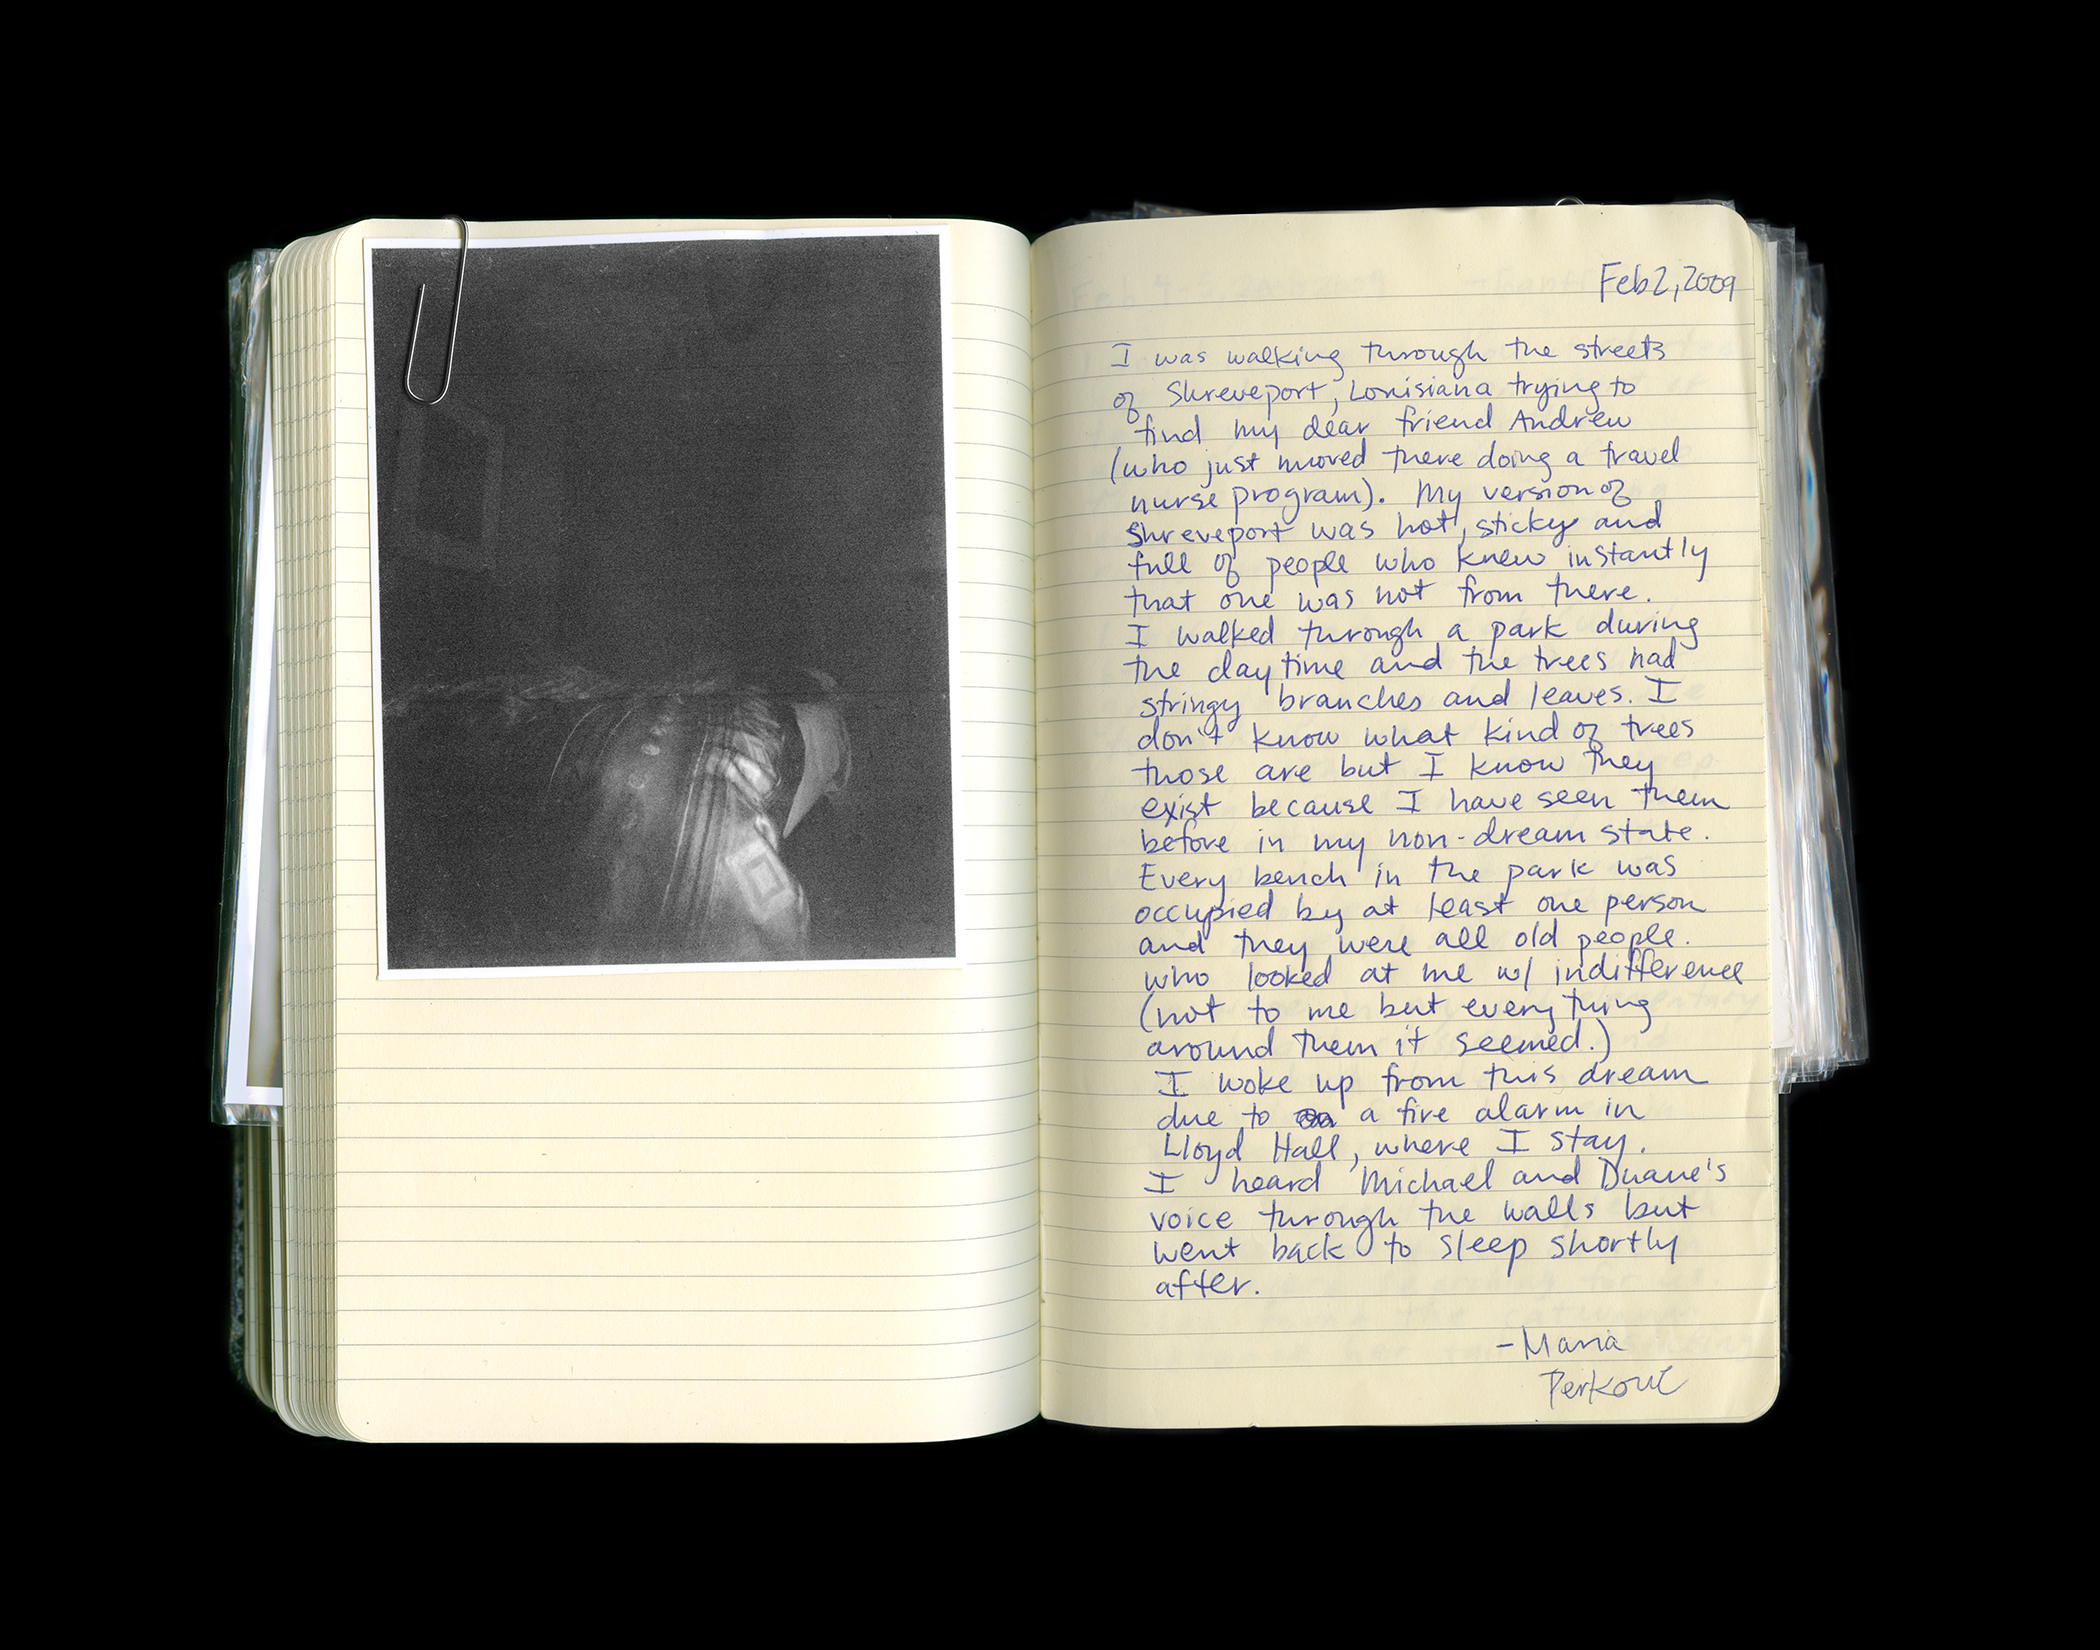 Feb 2, 2009
I was walking through the streets
of Shreveport, Louisiana trying to
find my dear friend Andrew
(who just moved there doing a travel
nurse program). My version of
Shreveport was hot, sticky and
full of people who knew instantly
that one was not from there.
I walked through a park during
the daytime and the trees had
stringy branches and leaves. I
don't know what kind of trees
those are but I know they
exist because I have seen them
before in my non-dream state.
Every bench in the park was
occupied by at least one person
and they were all old people.
who looked at me w/ indifference
(not to me but everything
around them it seemed.)
I woke up from this dream
due to a fire alarm in
Lloyd Hall, where I stay.
I heard Michael and Duane's
voice through the walls but
went back to sleep shortly
after.
-Maria